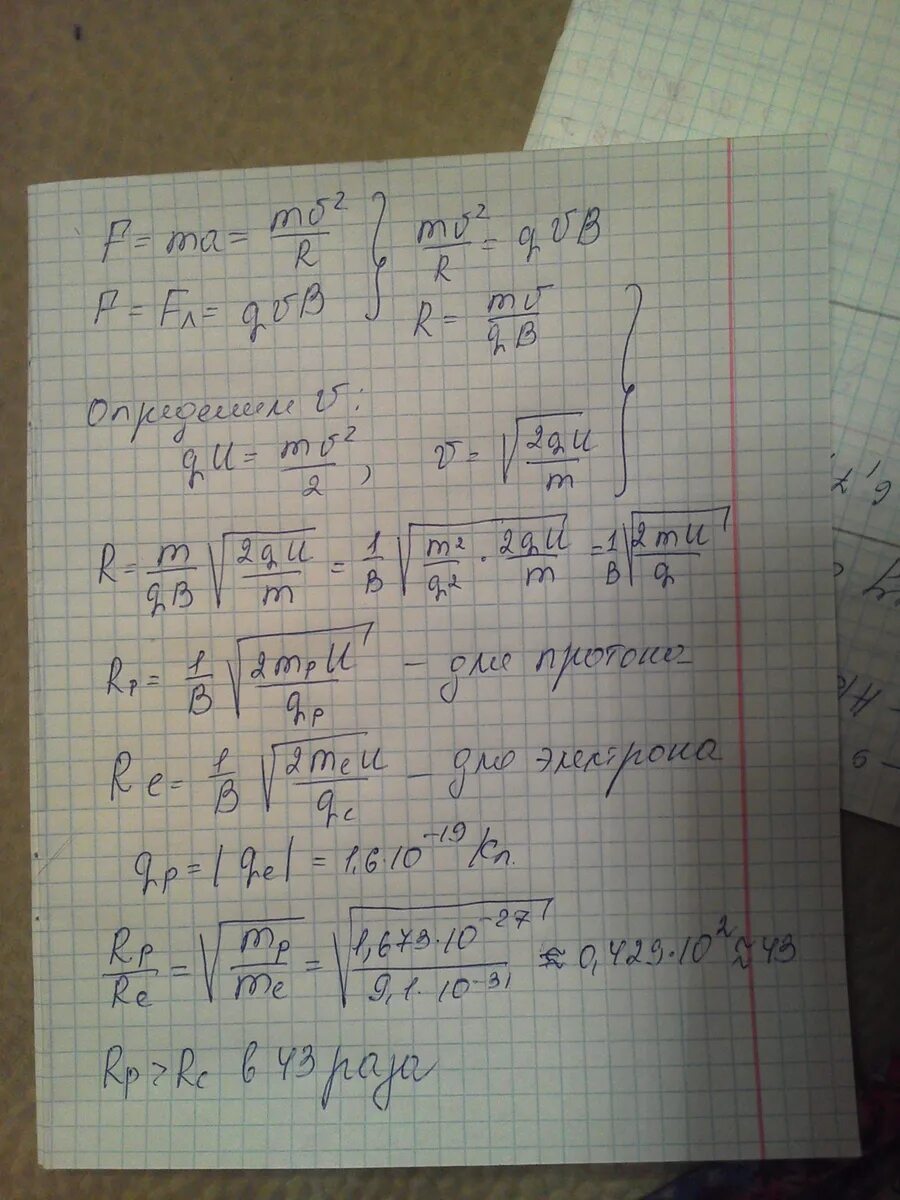 F = ma = mv²/R } mv²/R = qvB
F = Fл = qvB
R = mv/qB }
Определим v:
qU = mv²/2, v = √(2qU/m)
R = m/qB √(2qU/m) = 1/B √(m²/q² · 2qU/m) = 1/B √(2mU/q)
Rp = 1/B √(2mpU/qp) – для протона
Re = 1/B √(2meU/qe) – для электрона
qp = |qe| = 1,6·10⁻¹⁹ Кл.
Rp/Re = √(mp/me) = √(1,673·10⁻²⁷/9,1·10⁻³¹) ≈ 0,429·10² ≈ 43
Rp > Re в 43 раза